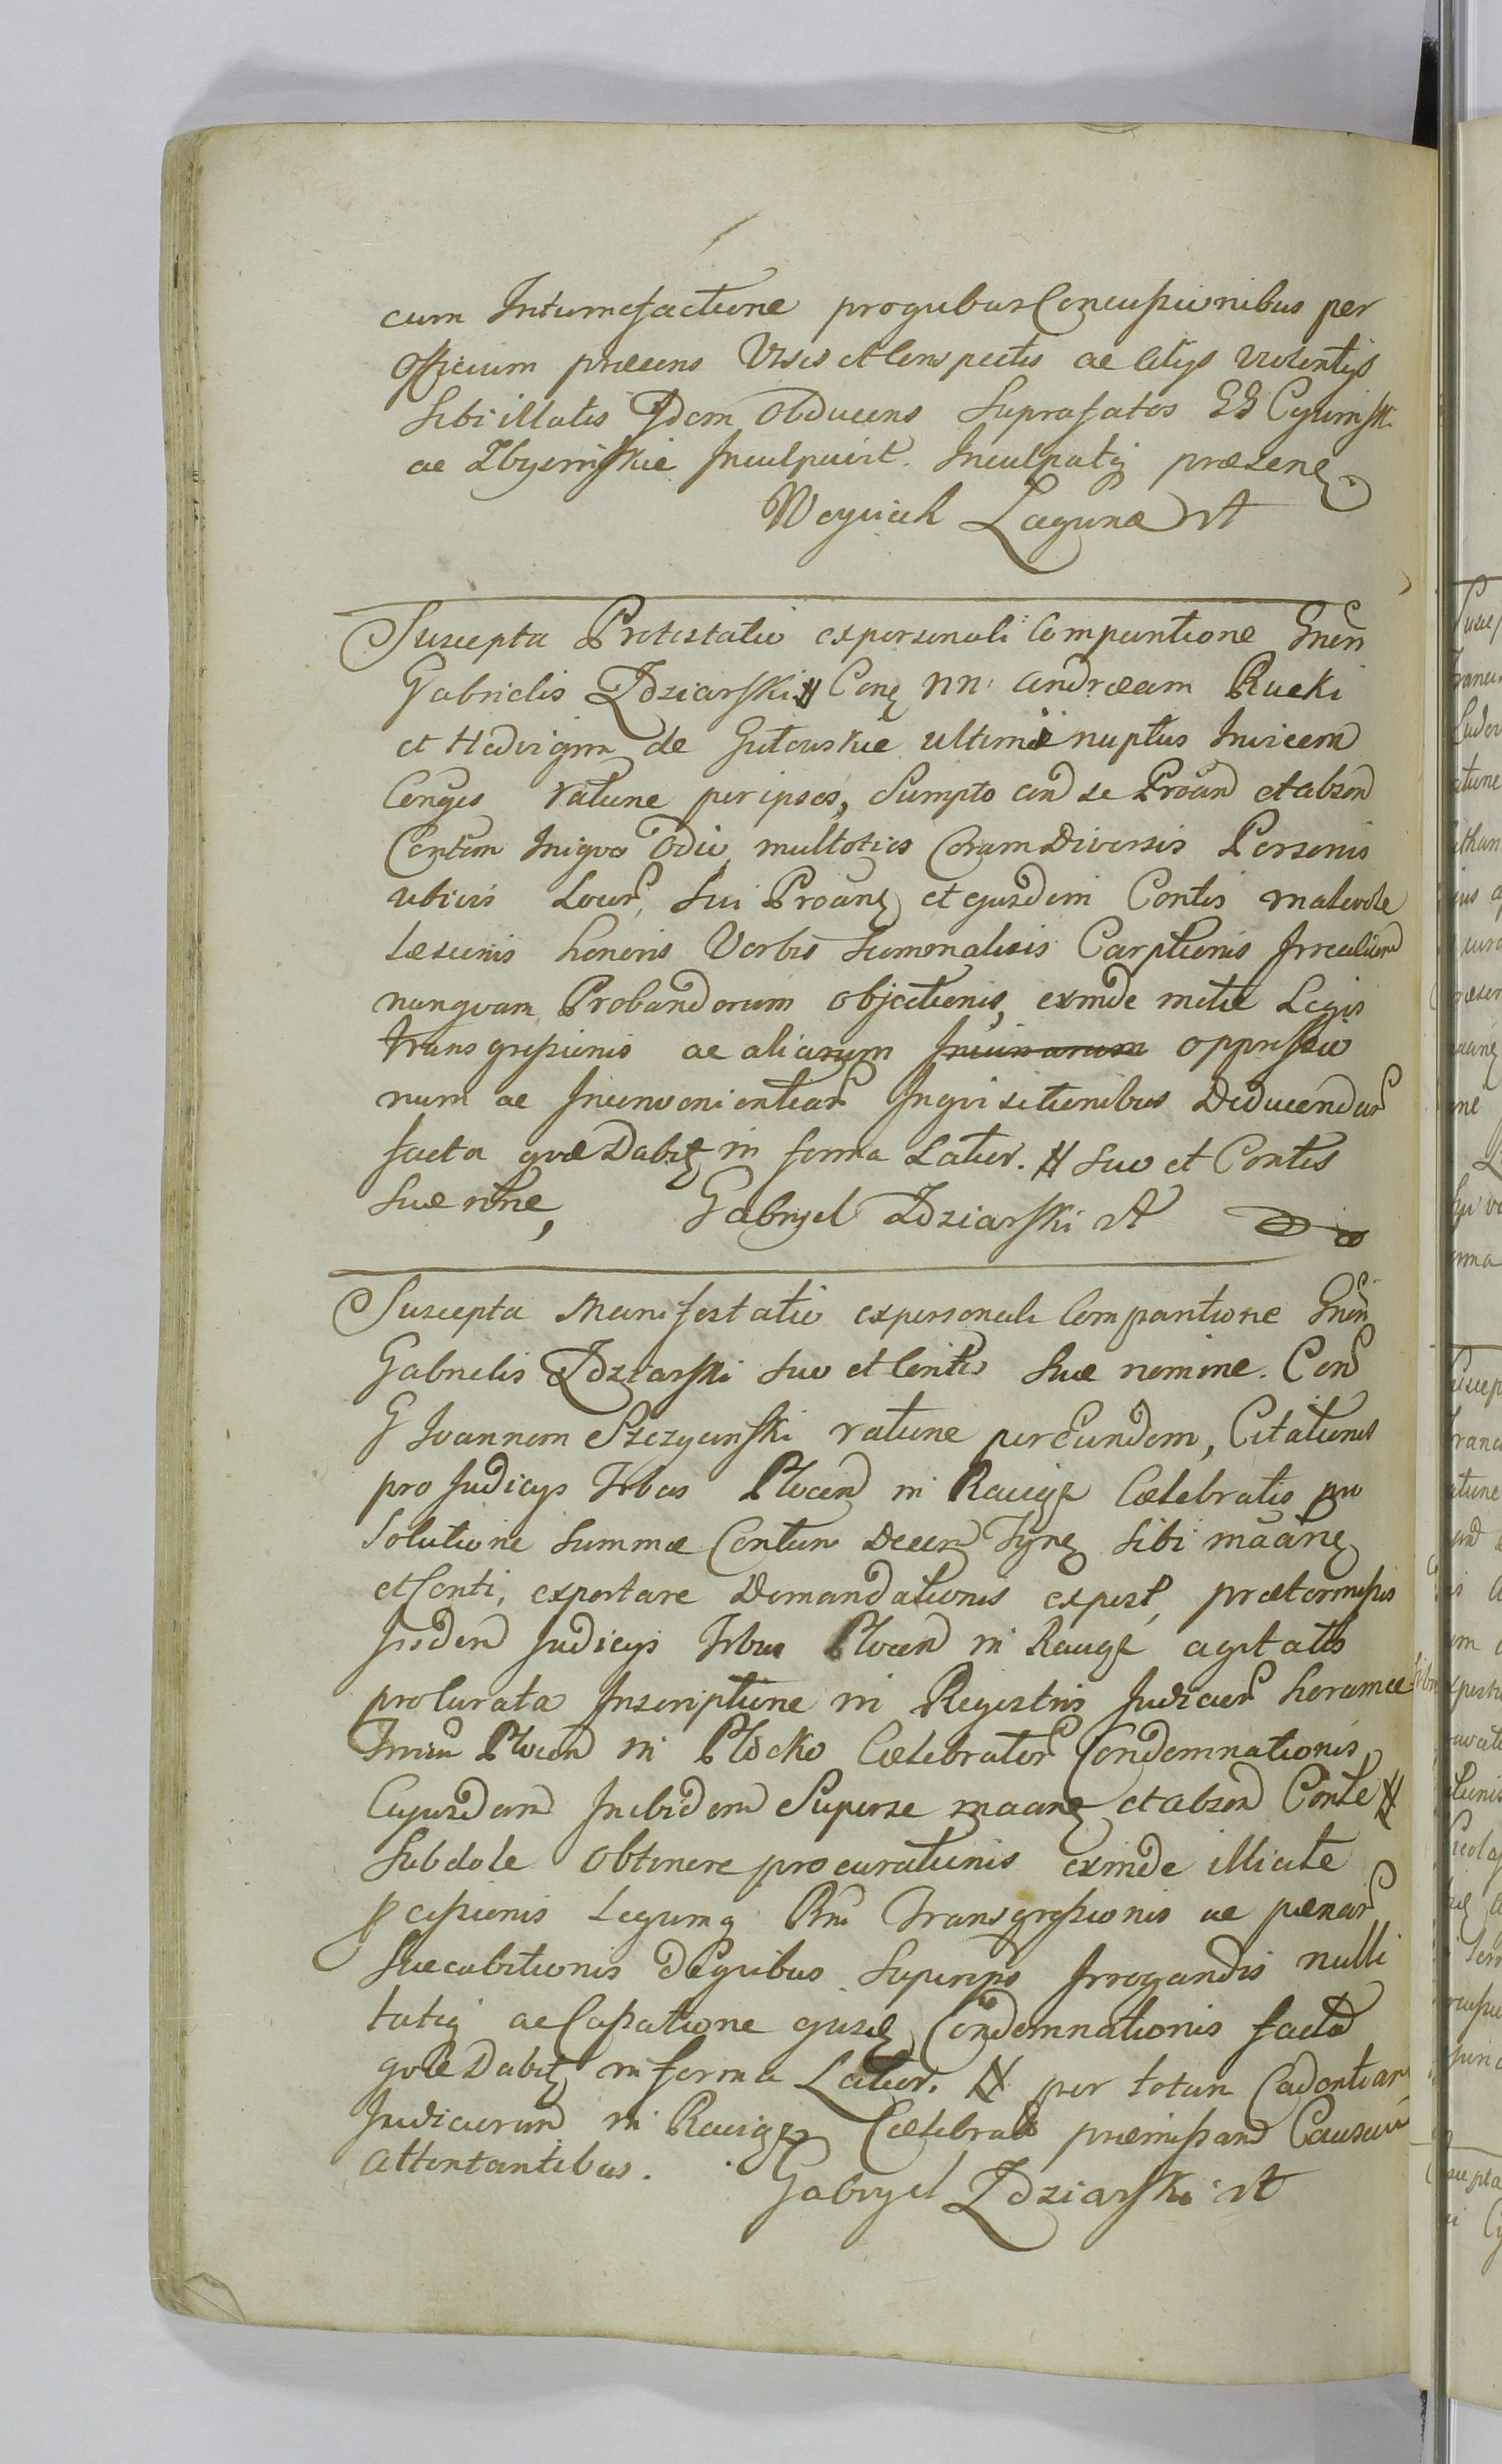 cum Intumefactione progubus Concussionibus per
Officium præsens Visis et Conspectis ac aliys violentys
Sibi illatis Idem Obducens Suprafatos GG Cycimsk.
ac Zbyszinskie Inculpavit. Inculpatq præsene
Woyciech Laguna
Suscepta Protestatio ex personali Comparitione Gnen
Gabrielis Zdziarski # Cone NN Andræam Rucki
et Hedvigim de Gutowskie ultime nuptus Invicem
Conges ratione per ipsos, Sumpto con se Proan et abson
Contem Iniqvo Odio, multoties Coram Diversis Personis
ubicis Locor, Sui Proane et ejusdem Contis malevole
læsionis honoris Verbis Carptionis
nunqvam Probandorum objectionis, exinde metæ Legis
transgressionis ac aliarum oppressio
num ac Inconvenientiar Inqvisitionibus Deducendar
facta qvæ Dabit in forma Latior. # Suo et Contis
Suæ nne, Gabryel Zdziarski
Suscepta Manifestatio ex personali Comparitione Gnen
Gabrielis Zdziarski Suo et Contis Suæ nomine. Con
G Joannem Szczycinski ratione per Eundem, Citationis
pro Judicys Trbus Plocen in Raciąz Cælebratis pro
Solutione Summæ Centum Decem Tyne Sibi maane
et Conti, exportare Demandationis expost, prætermissis
Iisdem Judicys Trbus Plocen in Raciąz agitatis
procurata Inscriptione in Regestris Judicior
Plocen in Płocko Cælebrator Condemnationis
Cujusdam Inibidem Super se maane et abson Conte #
Subdole Obtinere procurationis exinde illicite
pcessionis Legumq Rni Transgressionis ac pænar
Succubitionis De qvibus Super ips Irrogandis nulli
tatiq ac Cassatione ejusd Condemnationis facta
qvæ Dabit in forma Latior. # per totam Cadentiam
Judiciorum in Raciąz Cælebrat præmissam Causam
attentantibus. Gabryel Zdziarski